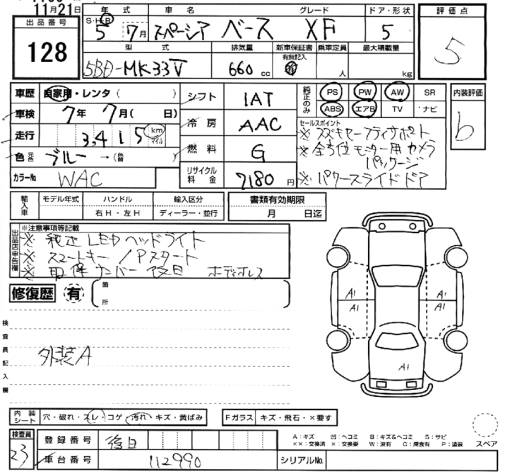 11月21日
出品番号 128
年式 S・H・R 5年 7月
車名 スペーシア ベース
グレード XF
ドア・形状 5
評価点 5
型式 5BD-MK33V
排気量 660 cc
新車保証書 有無記入
乗車定員 人
最大積載量 kg
車歴 自家用・レンタ( )
車検 7年7月( 日)
走行 3,415 km マイル
色 ブルー →( )
カラーNo WAC
シフト 1AT
冷房 AAC
燃料 G
リサイクル料金 7180円
純正のみ PS PW AW SR
ABS エアB TV ナビ
内装評価 b
セールスポイント
※スズキセーフティサポート
※全方位モニター用カメラ
パッケージ
※パワースライドドア
輸入車 モデル年式 ハンドル 輸入区分
右H・左H ディーラー・並行
書類有効期限
月 日迄
※注意事項等記載
※純正LEDヘッドライト
※スマートキー/Pスタート
※取保ナンバー後日 ボディガラス
修復歴 有 箇所
検査員記入欄
外装A
A1 A1
A1 A1
A1
内装シート 穴・破れ・スレ・コゲ・汚れ・キズ・黄ばみ
Fガラス キズ・飛石・×要す
検査員 23
登録番号 後日
車台番号 112990
シリアルNo.
A:キズ U:ヘコミ B:キズ&ヘコミ S:サビ
××:交換済 ×:交換要 W:波有 C:腐食有 P:塗装
スペア